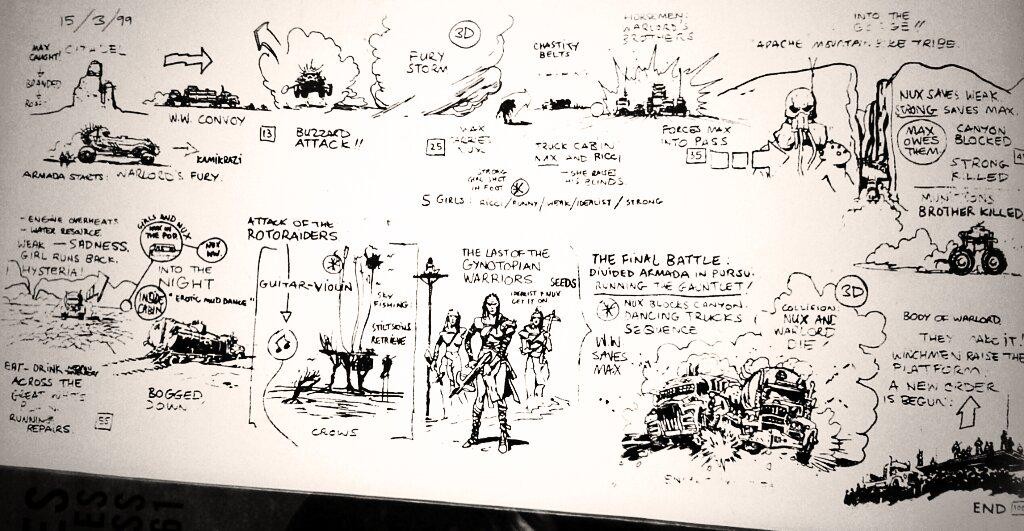 15/3/99
MAX
CAUGHT!
BRANDED
CITADEL
W.W. CONVOY
ARMADA STARTS: WARLORD'S FURY.
KAMIKRAZI
13
BUZZARD
ATTACK!!
FURY
STORM
3D
25
MAX
CHASTITY
BELTS
HORSEMEN:
WARLORD'S
BROTHERS
TRUCK CABIN
MAX AND RICCI
STRONG
GIRL SHOT
IN FOOT
SHE RAISE
HIS BLINDS.
5 GIRLS: RICCI/FUNNY/WEAK/IDEALIST/STRONG
FORCES MAX
INTO PASS
35
INTO THE
GORGE!!
APACHE MOUNTAIN BIKE TRIBE.
NUX SAVES WEAK.
STRONG SAVES MAX.
MAX
OWES
THEM
CANYON
BLOCKED
STRONG
KILLED
MUNITIONS
BROTHER KILLED
- ENGINE OVERHEATS
- WATER RESOURCE.
WEAK - SADNESS.
GIRL RUNS BACK.
HYSTERIA!
GIRLS AND NUX
MAX IN
THE POD
NUX
WW.
INTO THE
NIGHT
INSIDE
CABIN
"EROTIC MUD DANCE"
EAT-DRINK
ACROSS THE
GREAT WHITE
RUNNING
REPAIRS.
55
BOGGED
DOWN
ATTACK OF THE
ROTORAIDERS
GUITAR-VIOLIN
SKY
FISHING
STILTSKINS
RETRIEVE
CROWS
THE LAST OF THE
GYNOTOPIAN
WARRIORS
SEEDS
IDEALIST & NUX
GET IT ON
THE FINAL BATTLE:
DIVIDED ARMADA IN PURSU
RUNNING THE GAUNTLET!
NUX BLOCKS CANYON.
DANCING TRUCKS
SEQUENCE
WW
SAVES
MAX
COLLISION:
NUX AND
WARLORD
DIE
3D
BODY OF WARLORD.
THEY MAKE IT!
WINCHMEN RAISE THE
PLATFORM.
A NEW ORDER
IS BEGUN.
END